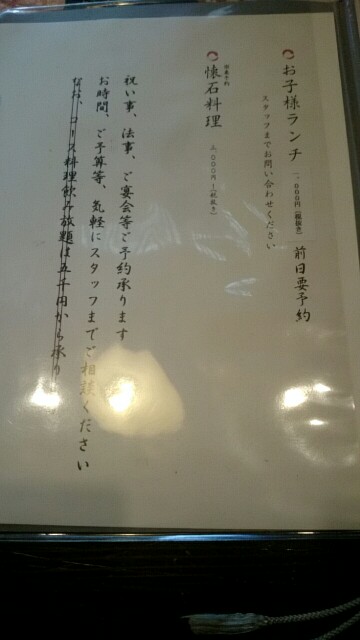 お子様ランチ 一、〇〇〇円(税抜き) 前日要予約
スタッフまでお問い合わせください
懐石料理 〇〇〇円~(税抜き)
祝い事、法事、ご宴会等ご予約承ります
お時間、ご予算等、気軽にスタッフまでご相談ください
なお、コース料理飲み放題は五千円から承り